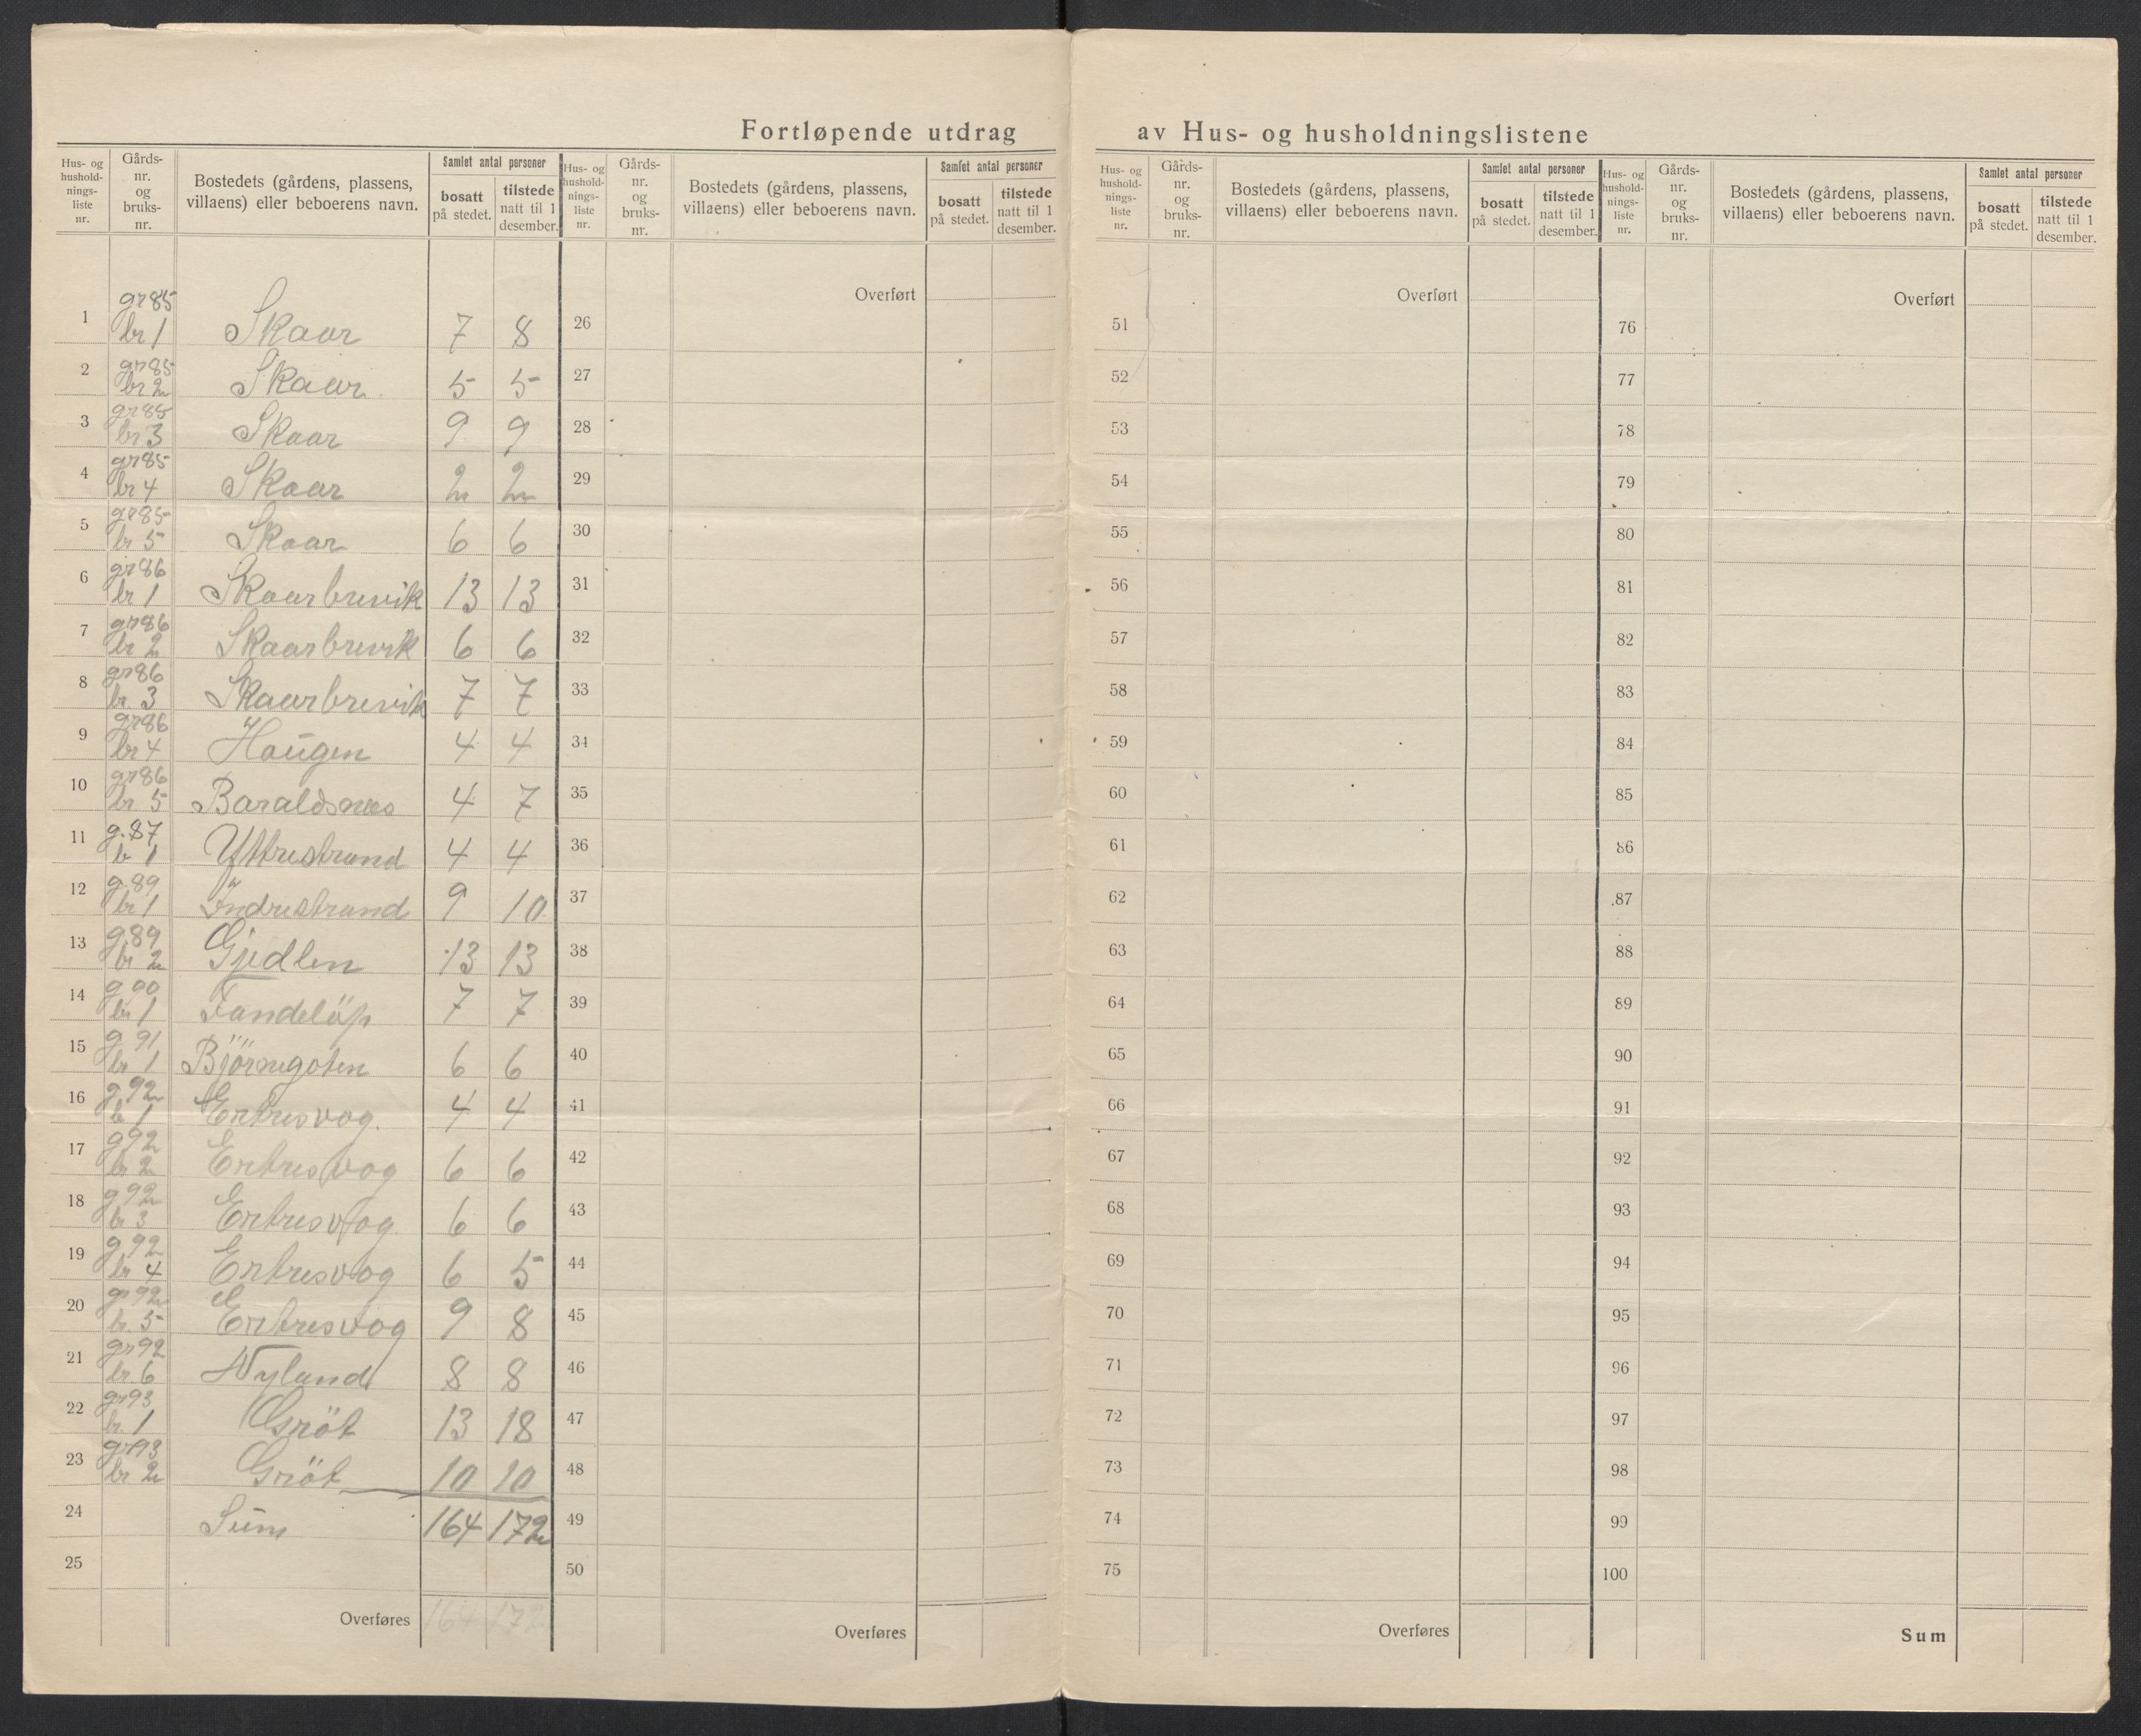 Fortløpende utdrag av Hus- og husholdningslistene
Hus- og husholdnings-liste nr. | Gårds-nr. og bruks-nr. | Bostedets (gårdens, plassens, villaens) eller beboerens navn. | Samlet antal personer | bosatt på stedet. | tilstede natt til 1 desember.
Hus- og hushold-nings-liste nr. | Gårds-nr. og bruks-nr. | Bostedets (gårdens, plassens, villaens) eller beboerens navn. | Samlet antal personer | bosatt på stedet. | tilstede natt til 1 desember.
Hus- og hushold-nings-liste nr. | Gårds-nr. og bruks-nr. | Bostedets (gårdens, plassens, villaens) eller beboerens navn. | Samlet antal personer | bosatt på stedet. | tilstede natt til 1 desember.
Hus- og hushold-nings-liste nr. | Gårds-nr. og bruks-nr. | Bostedets (gårdens, plassens, villaens) eller beboerens navn. | Samlet antal personer | bosatt på stedet. | tilstede natt til 1 desember.
Overført Overført Overført
1 gr 85 br 1 Skaar 7 8 26 51 76
2 gr 85 br 2 Skaar 5 5 27 52 77
3 gr 85 br 3 Skaar 9 9 28 53 78
4 gr 85 br 4 Skaar 2 2 29 54 79
5 gr 85 br 5 Skaar 6 6 30 55 80
6 gr 86 br 1 Skaarbrevik 13 13 31 56 81
7 gr 86 br 2 Skaarbrevik 6 6 32 57 82
8 gr 86 br. 3 Skaarbrevik 7 7 33 58 83
9 gr 86 br 4 Haugen 4 4 34 59 84
10 gr 86 br. 5 Baraldsnes 4 7 35 60 85
11 g. 87 b 1 Yttrestrand 4 4 36 61 86
12 g. 89 br 1 Indrestrand 9 10 37 62 87
13 g. 89 br 2 Gjedlen 13 13 38 63 88
14 g 90 br 1 Tandeløp 7 7 39 64 89
15 g 91 br 1 Björnegoten 6 6 40 65 90
16 g. 92 b 1 Ertresvog. 4 4 41 66 91
17 g 92 br 2 Ertresvog 6 6 42 67 92
18 g 92 br 3 Ertresvog. 6 6 43 68 93
19 g. 92 br 4 Ertresvog 6 5 44 69 94
20 gr 92 br. 5 Ertresvog 9 8 45 70 95
21 gr 92 br. 6 Nyland 8 8 46 71 96
22 gr 93 br. 1 Gröt 13 18 47 72 97
23 gr 93 br 2 Gröt 10 10 48 73 98
24 Sum 164 172 49 74 99
25 50 75 100
Overføres 164 172 Overføres Overføres Sum